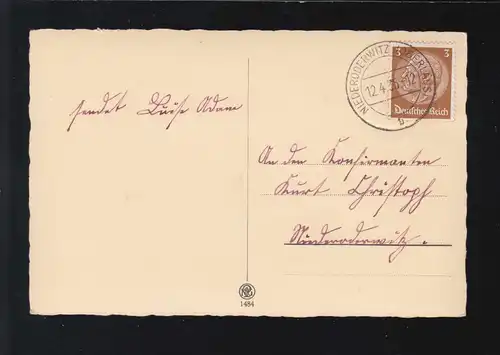 sendet Luise Adam
NIEDERODERWITZ
12.4.35
b
3 3
Deutsches Reich
An den Konfirmanten
Kurt Christoph
Niederoderwitz.
1484